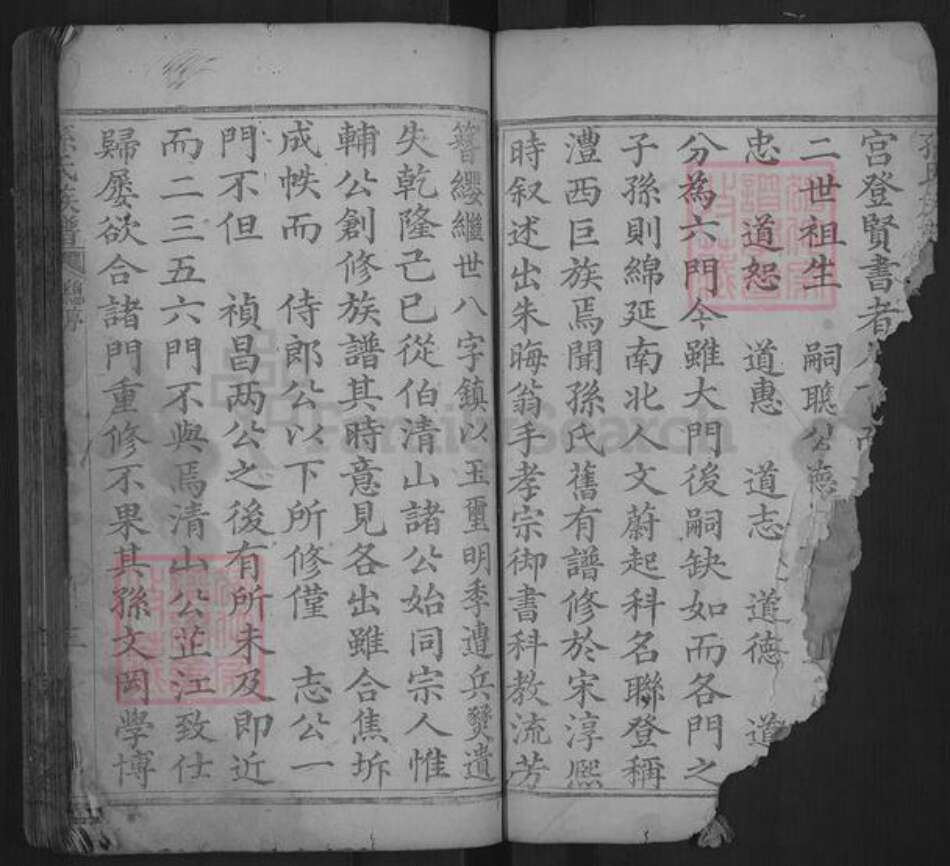 宮登賢書者
二世祖生 嗣聰公德
忠 道恕 道惠 道志 道德 道
分為六門今雖大門後嗣缺如而各門之
子孫則綿延南北人文蔚起科名聯登稱
澧西巨族焉聞孫氏舊有譜修於宋淳熙
時叙述出朱晦翁手孝宗御書科教流芳
簪纓繼世八字鎮以玉璽明季遭兵燹遺
失乾隆己巳從伯清山諸公始同宗人惟
輔公創修族譜其時意見各出雖合焦圻
成帙而 侍郎公以下所修僅 志公一
門不但 禎昌两公之後有所未及即近
而二三五六門不與焉清山公芷江致仕
歸屡欲合諸門重修不果其孫文岡學博
氏族譜
FamilySearch